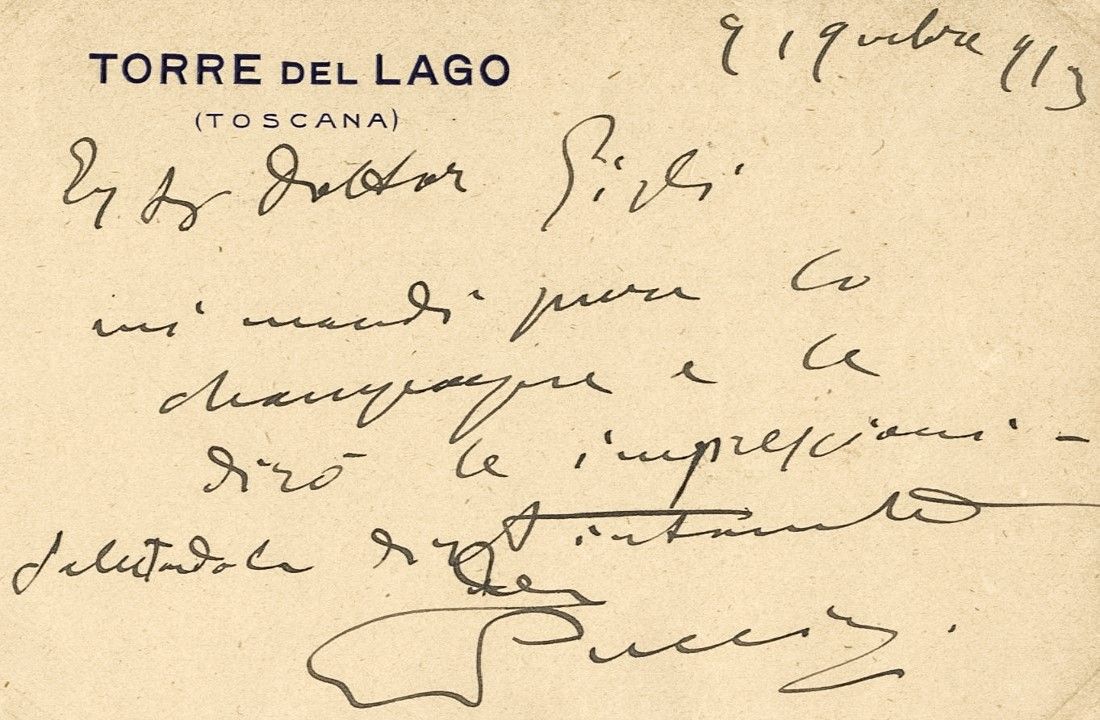 9 9mbre 913
TORRE DEL LAGO
(TOSCANA)
Eg Sg Dottor Gigli
mi mandi pure lo
champagne e le
dirò le impressioni -
salutandola distintamente
Puccini.